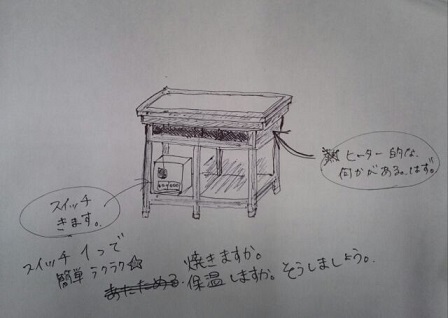 ヒーター的な
何かがある。はず。
スイッチ
きます。
スイッチ1つで
簡単ラクラク☆
焼きますか。
あたためる 保温しますか。そうしましょう。